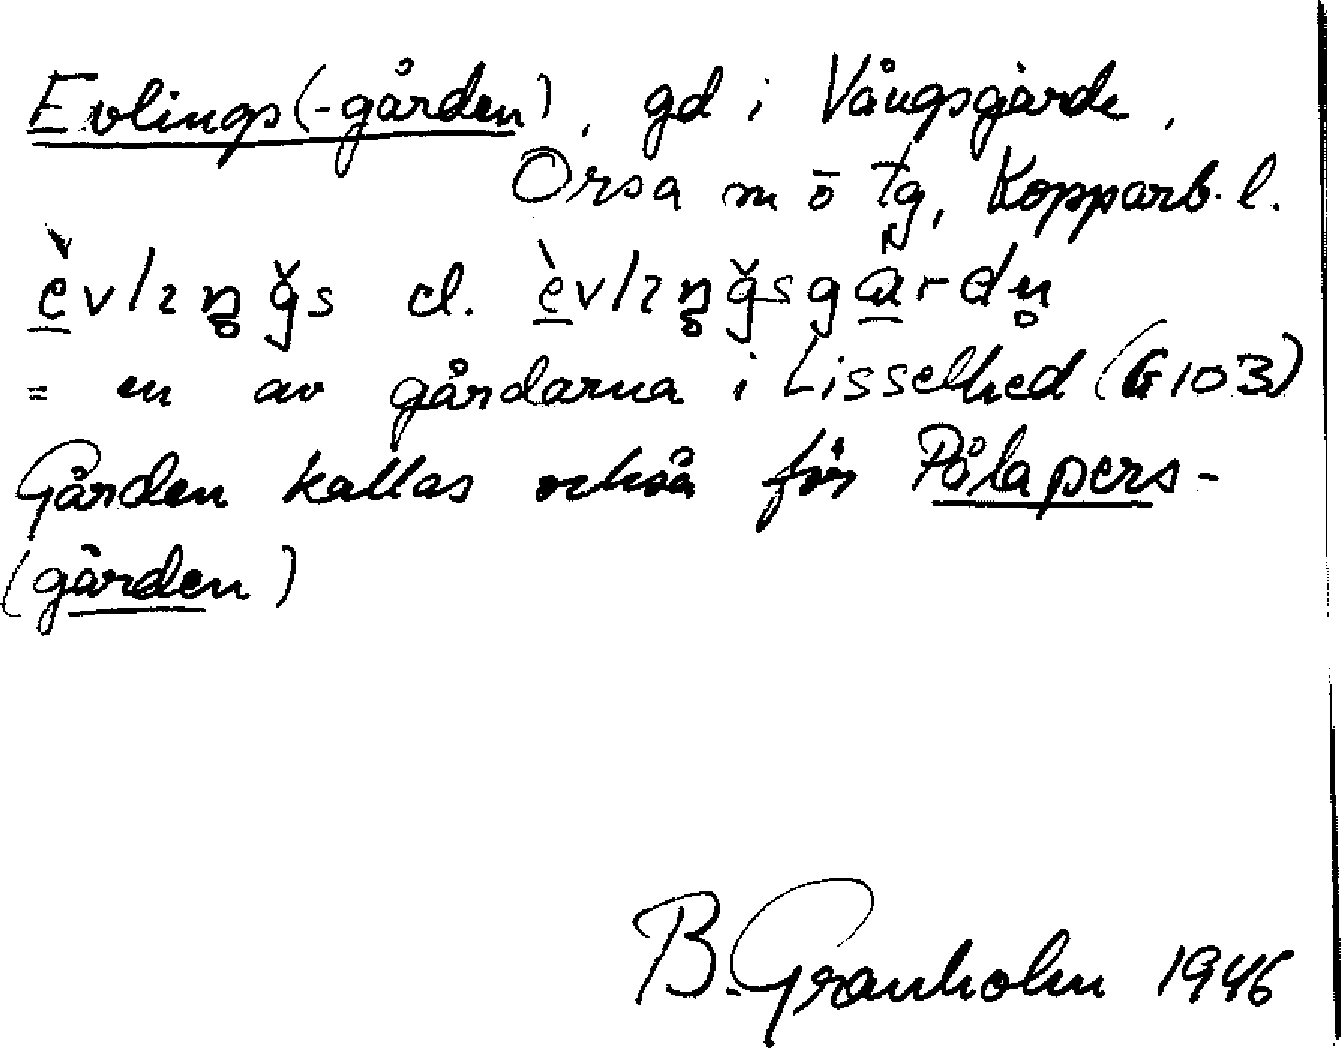 Evlings(-gården), gd i Vångsgärde,
Orsa sn ö tg, Kopparb. l.
= en av gårdarna i Lisselhed (G103)
Gården kallas också för Pålapers-
(gården)
B. Granholm 1946